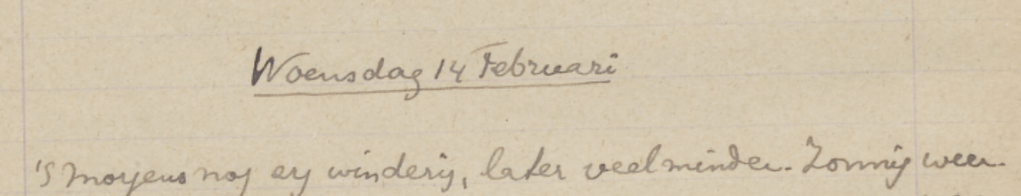 Woensdag 14 Februari
's morgens nog erg winderig, later veel minder. Zonnig weer.